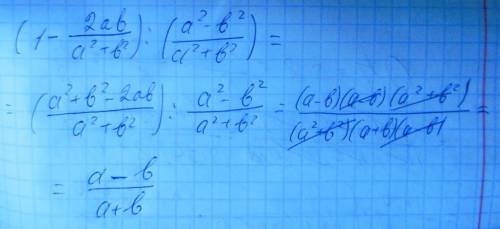 (1 - 2ab/(a² + b²)) : ((a² - b²)/(a² + b²)) =
= ((a² + b² - 2ab)/(a² + b²)) : (a² - b²)/(a² + b²) = (a-b)(a-b)(a² + b²)/((a² + b²)(a+b)(a-b)) =
= (a - b)/(a + b)